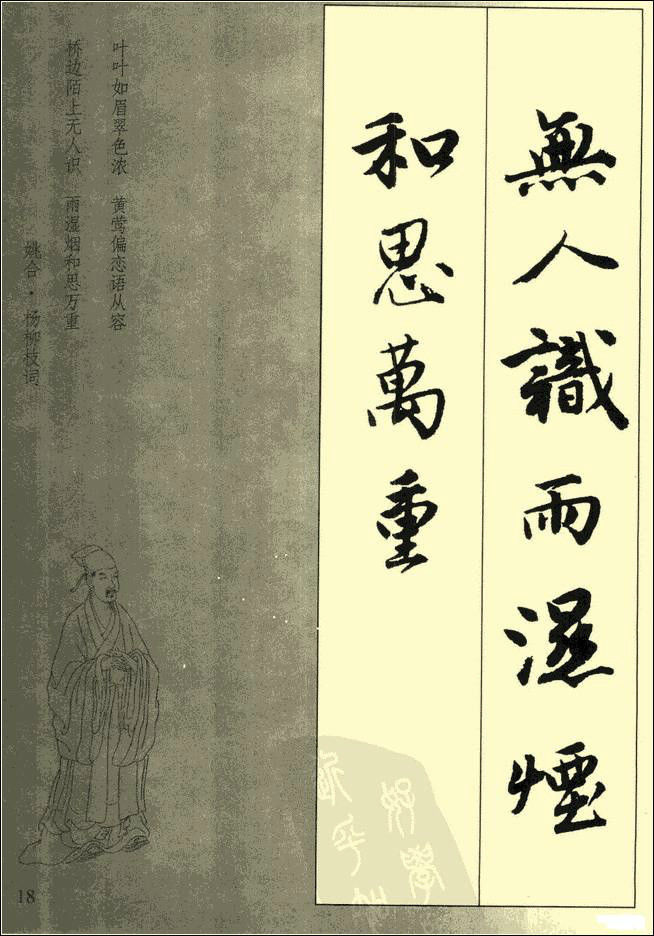 無人識雨濕煙
和思萬重
叶叶如眉翠色浓 黄莺偏恋语从容
桥边陌上无人识 雨湿烟和思万重
姚合·杨柳枝词
好學
18